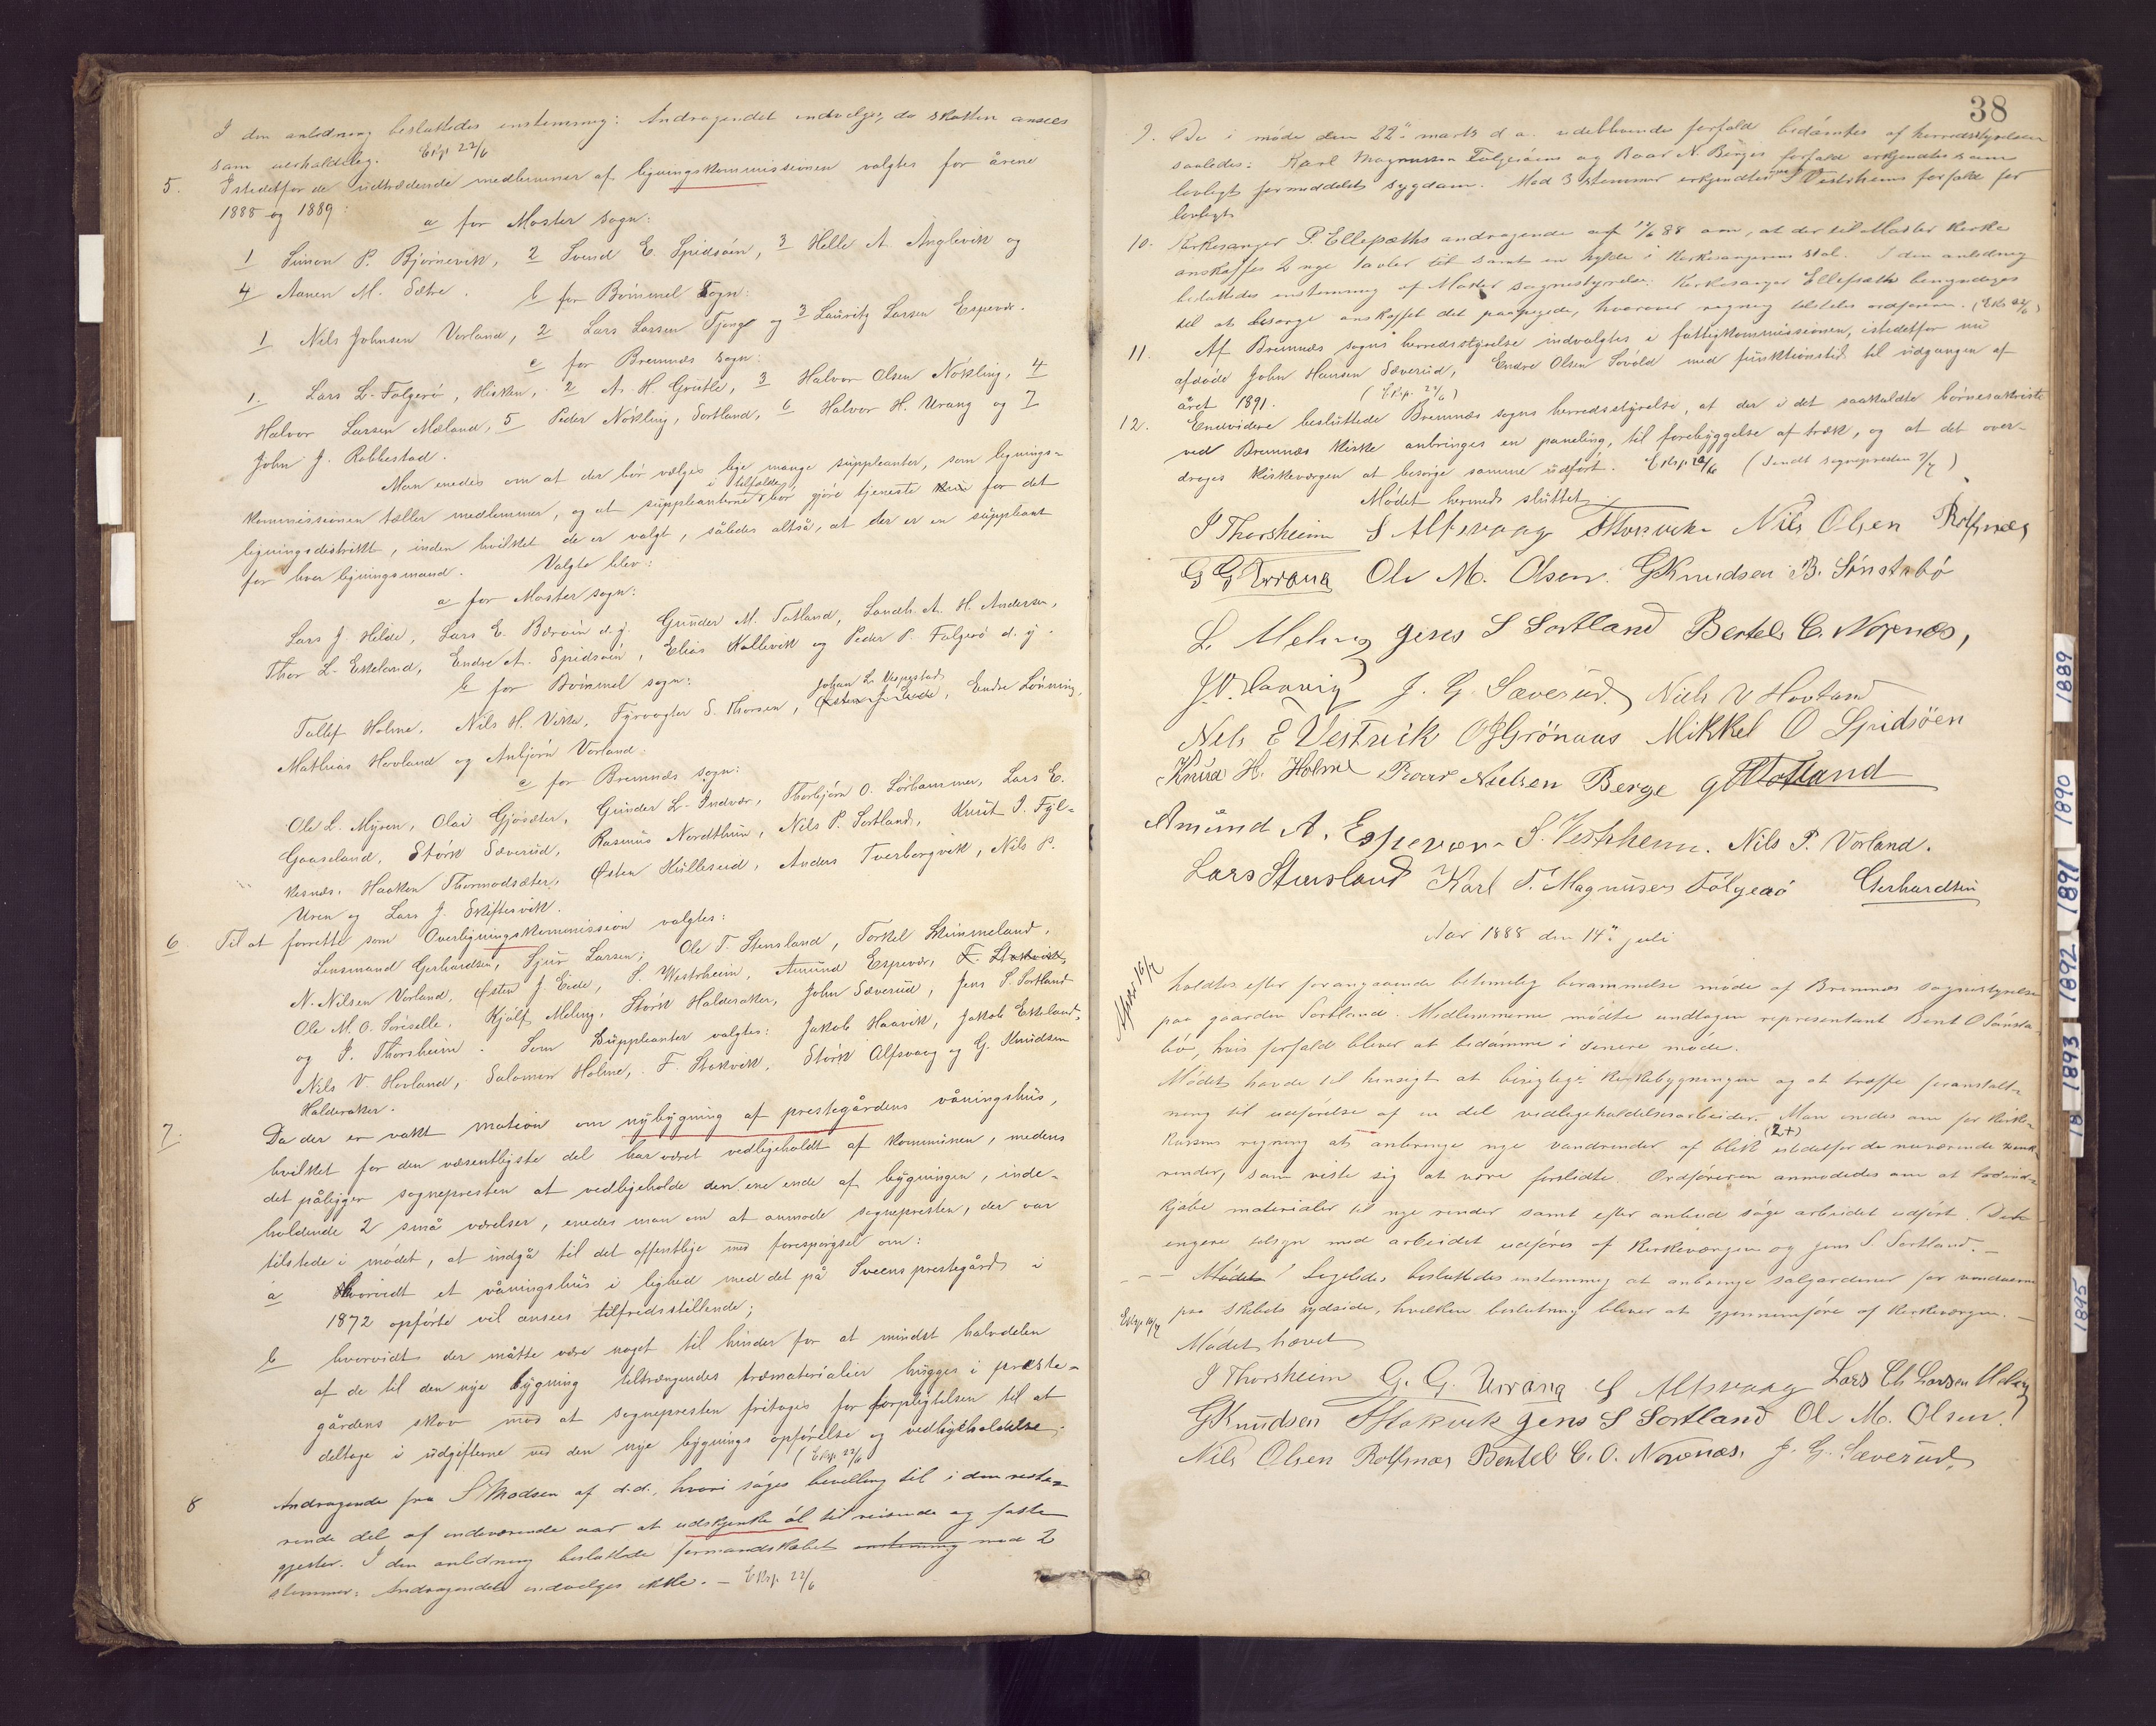 I den anledning besluttedes enstemmig: Andragendet indvelges, da skatten ansees
som uerholdelig. Exp 22/6
5. Istedetfor de udtrædende medlemmer af ligningskommissionen valgtes for årene
1888 og 1889:
a for Moster sogn:
1 Simon P. Bjørnevik, 2 Svend E. Spidsøen, 3 Helle A. Anglevik og
4 Aanen M. Sætre. b for Bømmel Sogn:
1 Nils Johnsen Vorland, 2 Lars Larsen Tjong og 3 Lauritz Larsen Espevær.
c for Bremnæs sogn:
1. Lars L. Folgerø, Hisken, 2 A. H. Grutle, 3 Halvor Olsen Nøkling, 4
Halvor Larsen Mæland, 5 Peder Nøkling, Sortland, 6 Halvor H. Urang og 7
John J. Robbestad.
Man enedes om at der bør vælges lige mange suppleanter, som lignings=
kommissionen tæller medlemmer, og at suppleanterne i tilfælde bør gjøre tjeneste kun for det
ligningsdistrikt, inden hvilket de er valgt, således altså, at der er en suppleant
for hver ligningsmand. Valgte blev:
a for Moster sogn:
Lars J. Hilde, Lars E. Bærøen d.y. Gunder M. Totland, Landh. A. H. Andersen,
Thor L. Eskeland, Endre A. Spidsøen, Elias Kallevik og Peder P. Folgerø d. y.
b for Bømmel sogn:
Tollef Holme, Nils H. Vika, Fyrvogter S. Thorsen, Østen J. Eide, Johan L. Vespestad, Endre Lønning,
Mathias Hovland og Anbjørn Vorland.
c for Bremnæs sogn:
Ole L. Mysen, Olai Gjøsæter, Gunder L. Indvær, Thorbjørn O. Sørhammer, Lars E.
Gaaseland, Størk Sæverud, Rasmus Nordthun, Nils P. Sortland, Knut I. Fyl=
kesnæs, Haakon Thormodsæter, Østen Kulleseid, Anders Tverborgvik, Nils P.
Uren og Lars J. Skiftesvik.
6. Til at forrette som Overligningskommission valgtes:
Lensmand Gerhardsen, Sjur Larsen, Ole T. Stensland, Torkel Skimmeland,
N. Nilsen Vorland, Østen J. Eide, S. Westrheim, Amund Espevær, F. Stokvik
Ole M. O. Søreselle, Kjølf Meling, Størk Halderaker, John Sæverud, Jens S. Sortland
og I. Thorsheim. Som Suppleanter valgtes: Jakob Haavik, Jakob Eskeland,
Nils V. Hovland, Salomon Holme, F. Stokvik, Størk Alfsvaag og G. Knudsen
Halderaker.
7. Da der er vakt motion om nybygning af prestegårdens våningshus,
hvilket for den væsentligste del har været vedligeholdt af kommunen, medens
det påligger sognepresten at vedligeholde den ene ende af bygningen, inde=
holdende 2 små værelser, enedes man om at anmode sognepresten, der var
tilstede i mødet, at indgå til det offentlige med forespørgsel om:
a Hvorvidt et våningshus i lighed med det på Sveens prestegård i
1872 opførte vil ansees tilfredsstillende;
b hvorvidt der måtte være noget til hinder for at mindst halvdelen
af de til den nye bygning tiltrængendes træmaterialier hugges i preste=
gårdens skov mod at sognepresten fritages for forpligtelsen til at
deltage i udgifterne ved den nye bygnings opførelse og vedligeholdelse.
(Exp. 22/6
8 Andragende fra S Madsen af d.d., hvori søges bevilling til i den reste=
rende del af indeværende aar at udskjenke øl til reisende og faste
gjester. I den anledning besluttede formandskabet enstemmig med 2
stemmer: Andragendet indvelges ikke. — Exp. 22/6
38
9. De i møde den 22de marts d. a. udeblevende forfald bedømtes af herredsstyrelsen
saaledes: Karl Magnussen Folgerøens og Roar N. Berges forfald erkjendtes som
lovligt formedelst sygdom. Med 3 stemmer erkjendtes S Vestrheims forfald for
lovligt
10. Kirkesanger P. Ellepæths andragende af 12/6 88 om, at der til Moster kirke
anskaffes 2 nye tavler samt en hylde i kirkesangerens stol. I den anledning
besluttedes enstemmig af Moster sognestyrelse: Kirkesanger Ellepæth bemyndiges
til at besørge anskaffet det paapegede, hvorover regning tilstilles ordføreren. (Exp 22/6)
11. Af Bremnæs sogns herredsstyrelse indvalgtes i fattigkommissionen, istedetfor nu
afdøde John Hansen Sæverud, Endre Olsen Søvold med funktionstid til udgangen af
året 1891. (Exp. 22/6)
12. Endvidere besluttede Bremnæs sogns herredsstyrelse, at der i det saakaldte børnesakristi
ved Bremnæs kirke anbringes en paneling, til forebyggelse af træk, og at det over=
drages kirkeværgen at besørge samme udført. Exp. 22/6 (Sendt sognepresten 2/7)
Mødet hermed sluttet.
I Thorsheim S Alfsvaag FStokvik Nils Olsen Rolfsnes
G G Urrang Ole M. Olsen. GKnudsen B. Sønstabø
L. Meling Jens S Sortland Bertel C. Norenæs,
J. V. Haavig J. G. Sæverud. Niels V Hovland
Nels E Vestvik O J Grönaas Mikkel O Spidsöen
Knud H. Holme Roar Nielsen Berge G H Totland
Amund A. Espevær S. Vestrheim. Nils P. Vorland.
Lars Stensland Karl T. Magnusen Folgerø Gerhardsen
Aar 1888 den 14de juli
holdtes efter forangaaende betimelig berammelse møde af Bremnæs sognestyrelse
paa gaarden Sortland. Medlemmerne mødte undtagen representant Bent O Sønsta=
bø, hvis forfald bliver at bedømme i senere møde.
Mødet havde til hensigt at besigtige kirkebygningen og at træffe foranstalt=
ning til udførelse af en del vedligeholdelsesarbeider. Man enedes om for kirke=
kassens regning at anbringe nye vandrender af blik (2+) istedetfor de nuværende zink
render, som viste sig at være forslidte. Ordføreren anmodedes om at lade ind=
kjøbe materialier til nye render samt efter anbud søge arbeidet udført. Det
engere tilsyn med arbeidet udføres af kirkeværgen og Jens S. Sortland. —
— — Mødet Ligeledes besluttedes enstemmig at anbringe solgardiner for vinduerne
paa skibets sydside, hvilken beslutning bliver at gjennemføre af kirkeværgen. —
Exp. 16/7
Mødet hævet
I Thorsheim G. G. Urrang S Alfsvaag Lars Ch Larsen Meling
GKnudsen FStokvik Jens S Sortland Ole M. Olsen.
Nils Olsen Rolfsnæs Bentel C. O. Norenæs. J. G. Sæverud.
1889
1890
1891
1892
1893
18
1895